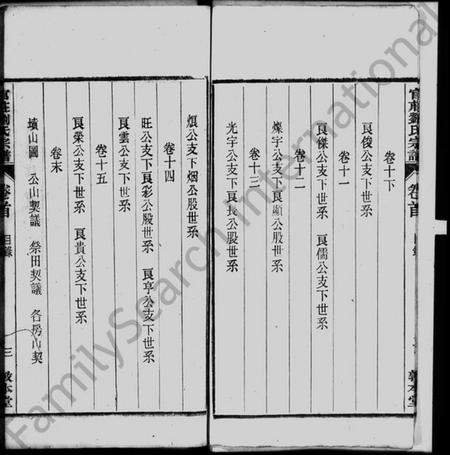 官莊劉氏宗譜 卷首 目錄 敦本堂
卷十下
良俊公支下世系
卷十一
良傑公支下世系 良儒公支下世系
卷十二
燦字公支下良顯公股世系
卷十三
光宇公支下良長公股世系
熉公支下烟公股世系
卷十四
旺公支下良彩公股世系 良亨公支下世系
良雲公支下世系
卷十五
良榮公支下世系 良貴公支下世系
卷末
墳山圖 公山契議 祭田契議 各房山契
官莊劉氏宗譜 卷首 目錄 三 敦本堂
FamilySearch International